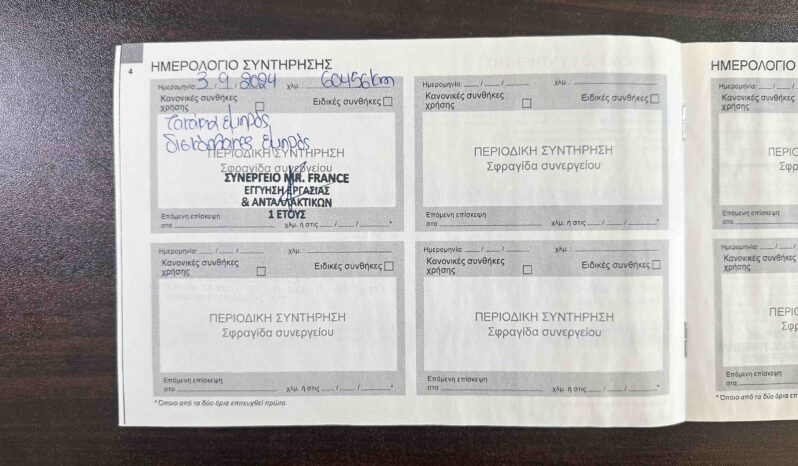 4
ΗΜΕΡΟΛΟΓΙΟ ΣΥΝΤΗΡΗΣΗΣ
Ημερομηνία: 3 / 9 / 2024 χλμ. 60456km
Κανονικές συνθήκες χρήσης Ειδικές συνθήκες
εμπρός
εμπρός
ΠΕΡΙΟΔΙΚΗ ΣΥΝΤΗΡΗΣΗ
Σφραγίδα συνεργείου
ΣΥΝΕΡΓΕΙΟ MR. FRANCE
ΕΓΓΥΗΣΗ ΕΡΓΑΣΙΑΣ
& ΑΝΤΑΛΛΑΚΤΙΚΩΝ
1 ΕΤΟΥΣ
Επόμενη επίσκεψη
στα χλμ. ή στις / / *
Ημερομηνία: / / χλμ.
Κανονικές συνθήκες χρήσης Ειδικές συνθήκες
ΠΕΡΙΟΔΙΚΗ ΣΥΝΤΗΡΗΣΗ
Σφραγίδα συνεργείου
Επόμενη επίσκεψη
στα χλμ. ή στις / / *
Ημερομηνία: / / χλμ.
Κανονικές συνθήκες χρήσης Ειδικές συνθήκες
ΠΕΡΙΟΔΙΚΗ ΣΥΝΤΗΡΗΣΗ
Σφραγίδα συνεργείου
Επόμενη επίσκεψη
στα χλμ. ή στις / / *
Ημερομηνία: / / χλμ.
Κανονικές συνθήκες χρήσης Ειδικές συνθήκες
ΠΕΡΙΟΔΙΚΗ ΣΥΝΤΗΡΗΣΗ
Σφραγίδα συνεργείου
Επόμενη επίσκεψη
στα χλμ. ή στις / / *
* Όποιο από τα δύο όρια επιτευχθεί πρώτο.
ΗΜΕΡΟΛΟΓΙΟ
Ημερομηνία: / /
Κανονικές συνθήκες
χρήσης
Επόμενη επίσκεψη
στα
Ημερομηνία: / /
Κανονικές συνθήκες
χρήσης
Επόμενη επίσκεψη
στα
* Όποιο από τα δύο όρια